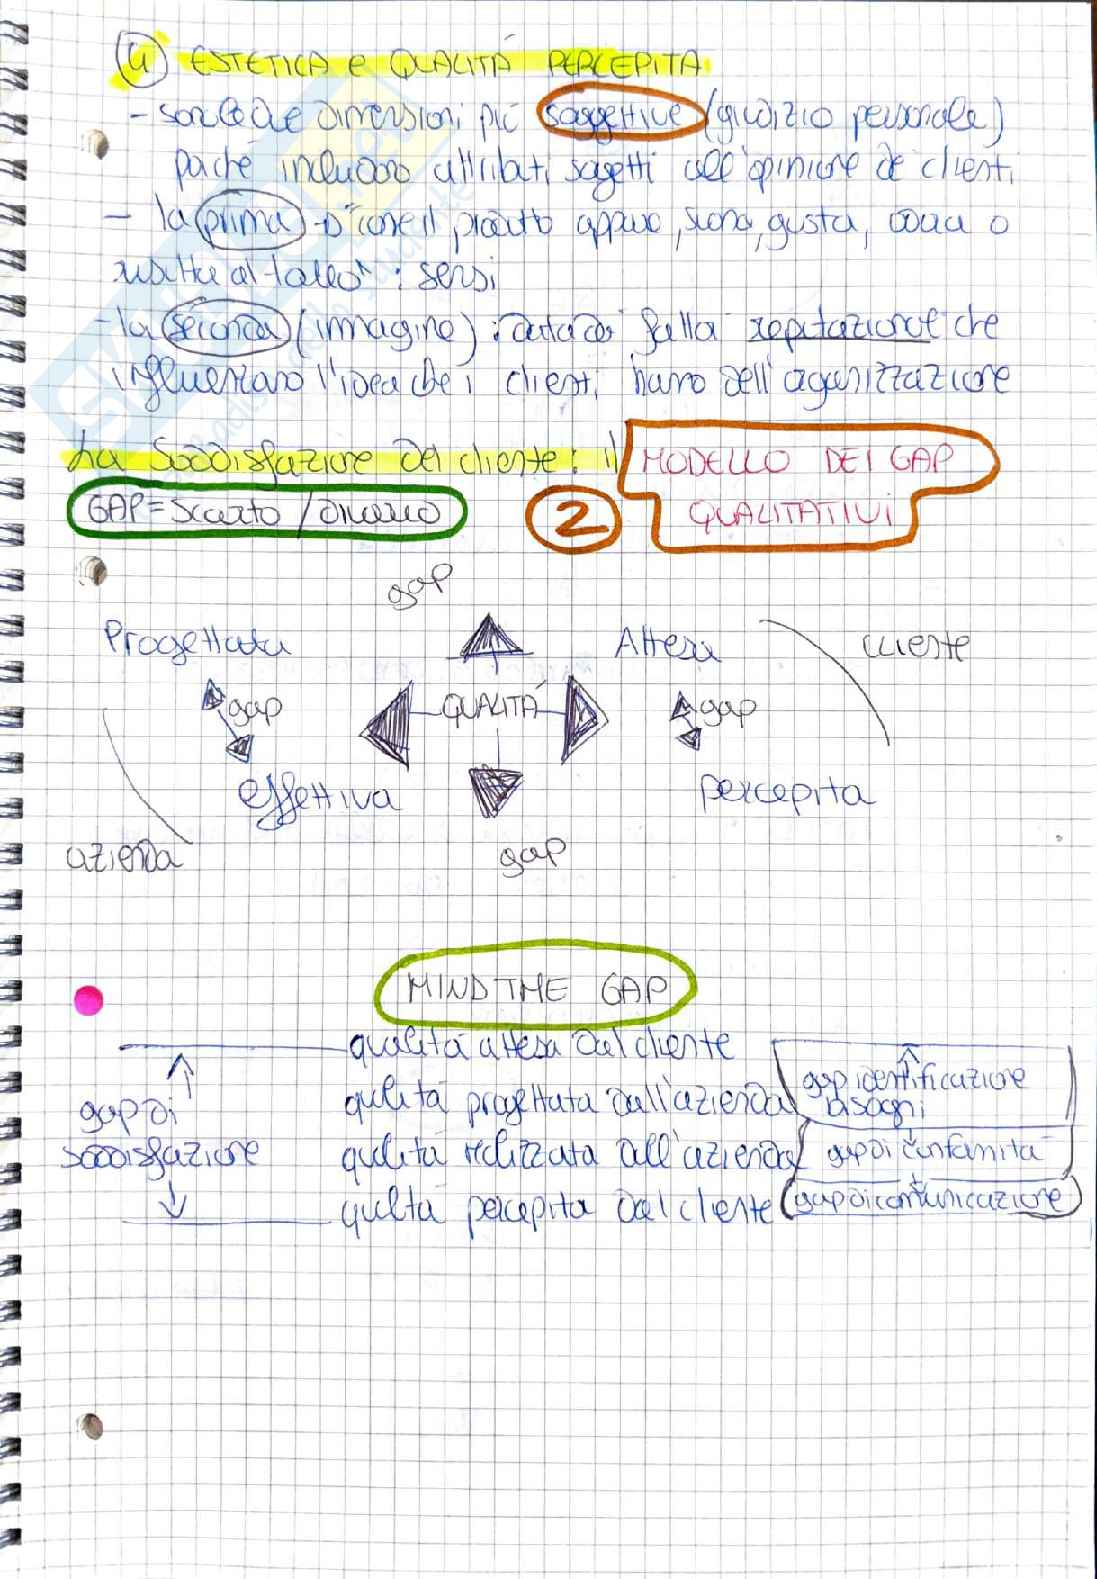 4 ESTETICA e QUALITÁ PERCEPITA
- sono le due dimensioni più soggettive (giudizio personale)
perché includono attributi soggetti all'opinione dei clienti
- la prima → "come il prodotto appare, suona, gusta, odora o
risulta al tatto": sensi
- la seconda (immagine): dalla reputazione che
influenzano l'idea che i clienti hanno dell'organizzazione
La Soddisfazione del cliente: il MODELLO DEI GAP
GAP = Scarto / Divario 2 QUALITATIVI
gap
Progettata Attesa cliente
gap QUALITÁ gap
effettiva percepita
azienda gap
MIND THE GAP
qualità attesa dal cliente
gap di qualità progettata dall'azienda gap identificazione bisogni
soddisfazione qualità realizzata dall'azienda gap di conformità
qualità percepita dal cliente gap di comunicazione